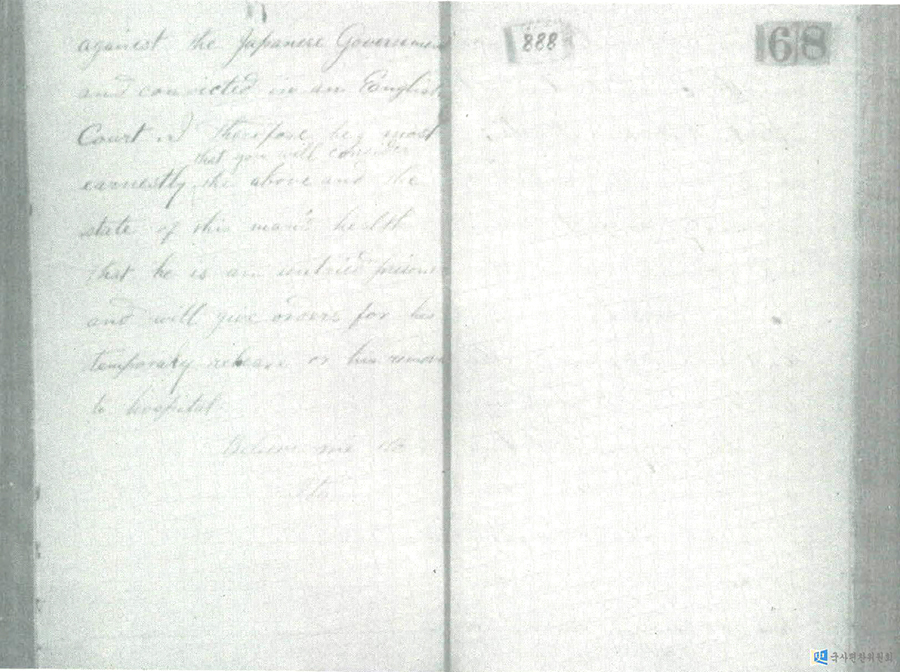 against the Japanese Government
and convicted in an English
Court. I therefore beg most
that you will consider
earnestly the above and the
state of this man's health
that he is an untried prisoner
and will give orders for his
temporary release or his removal
to hospital
Believe me &c
888
68
국사편찬위원회